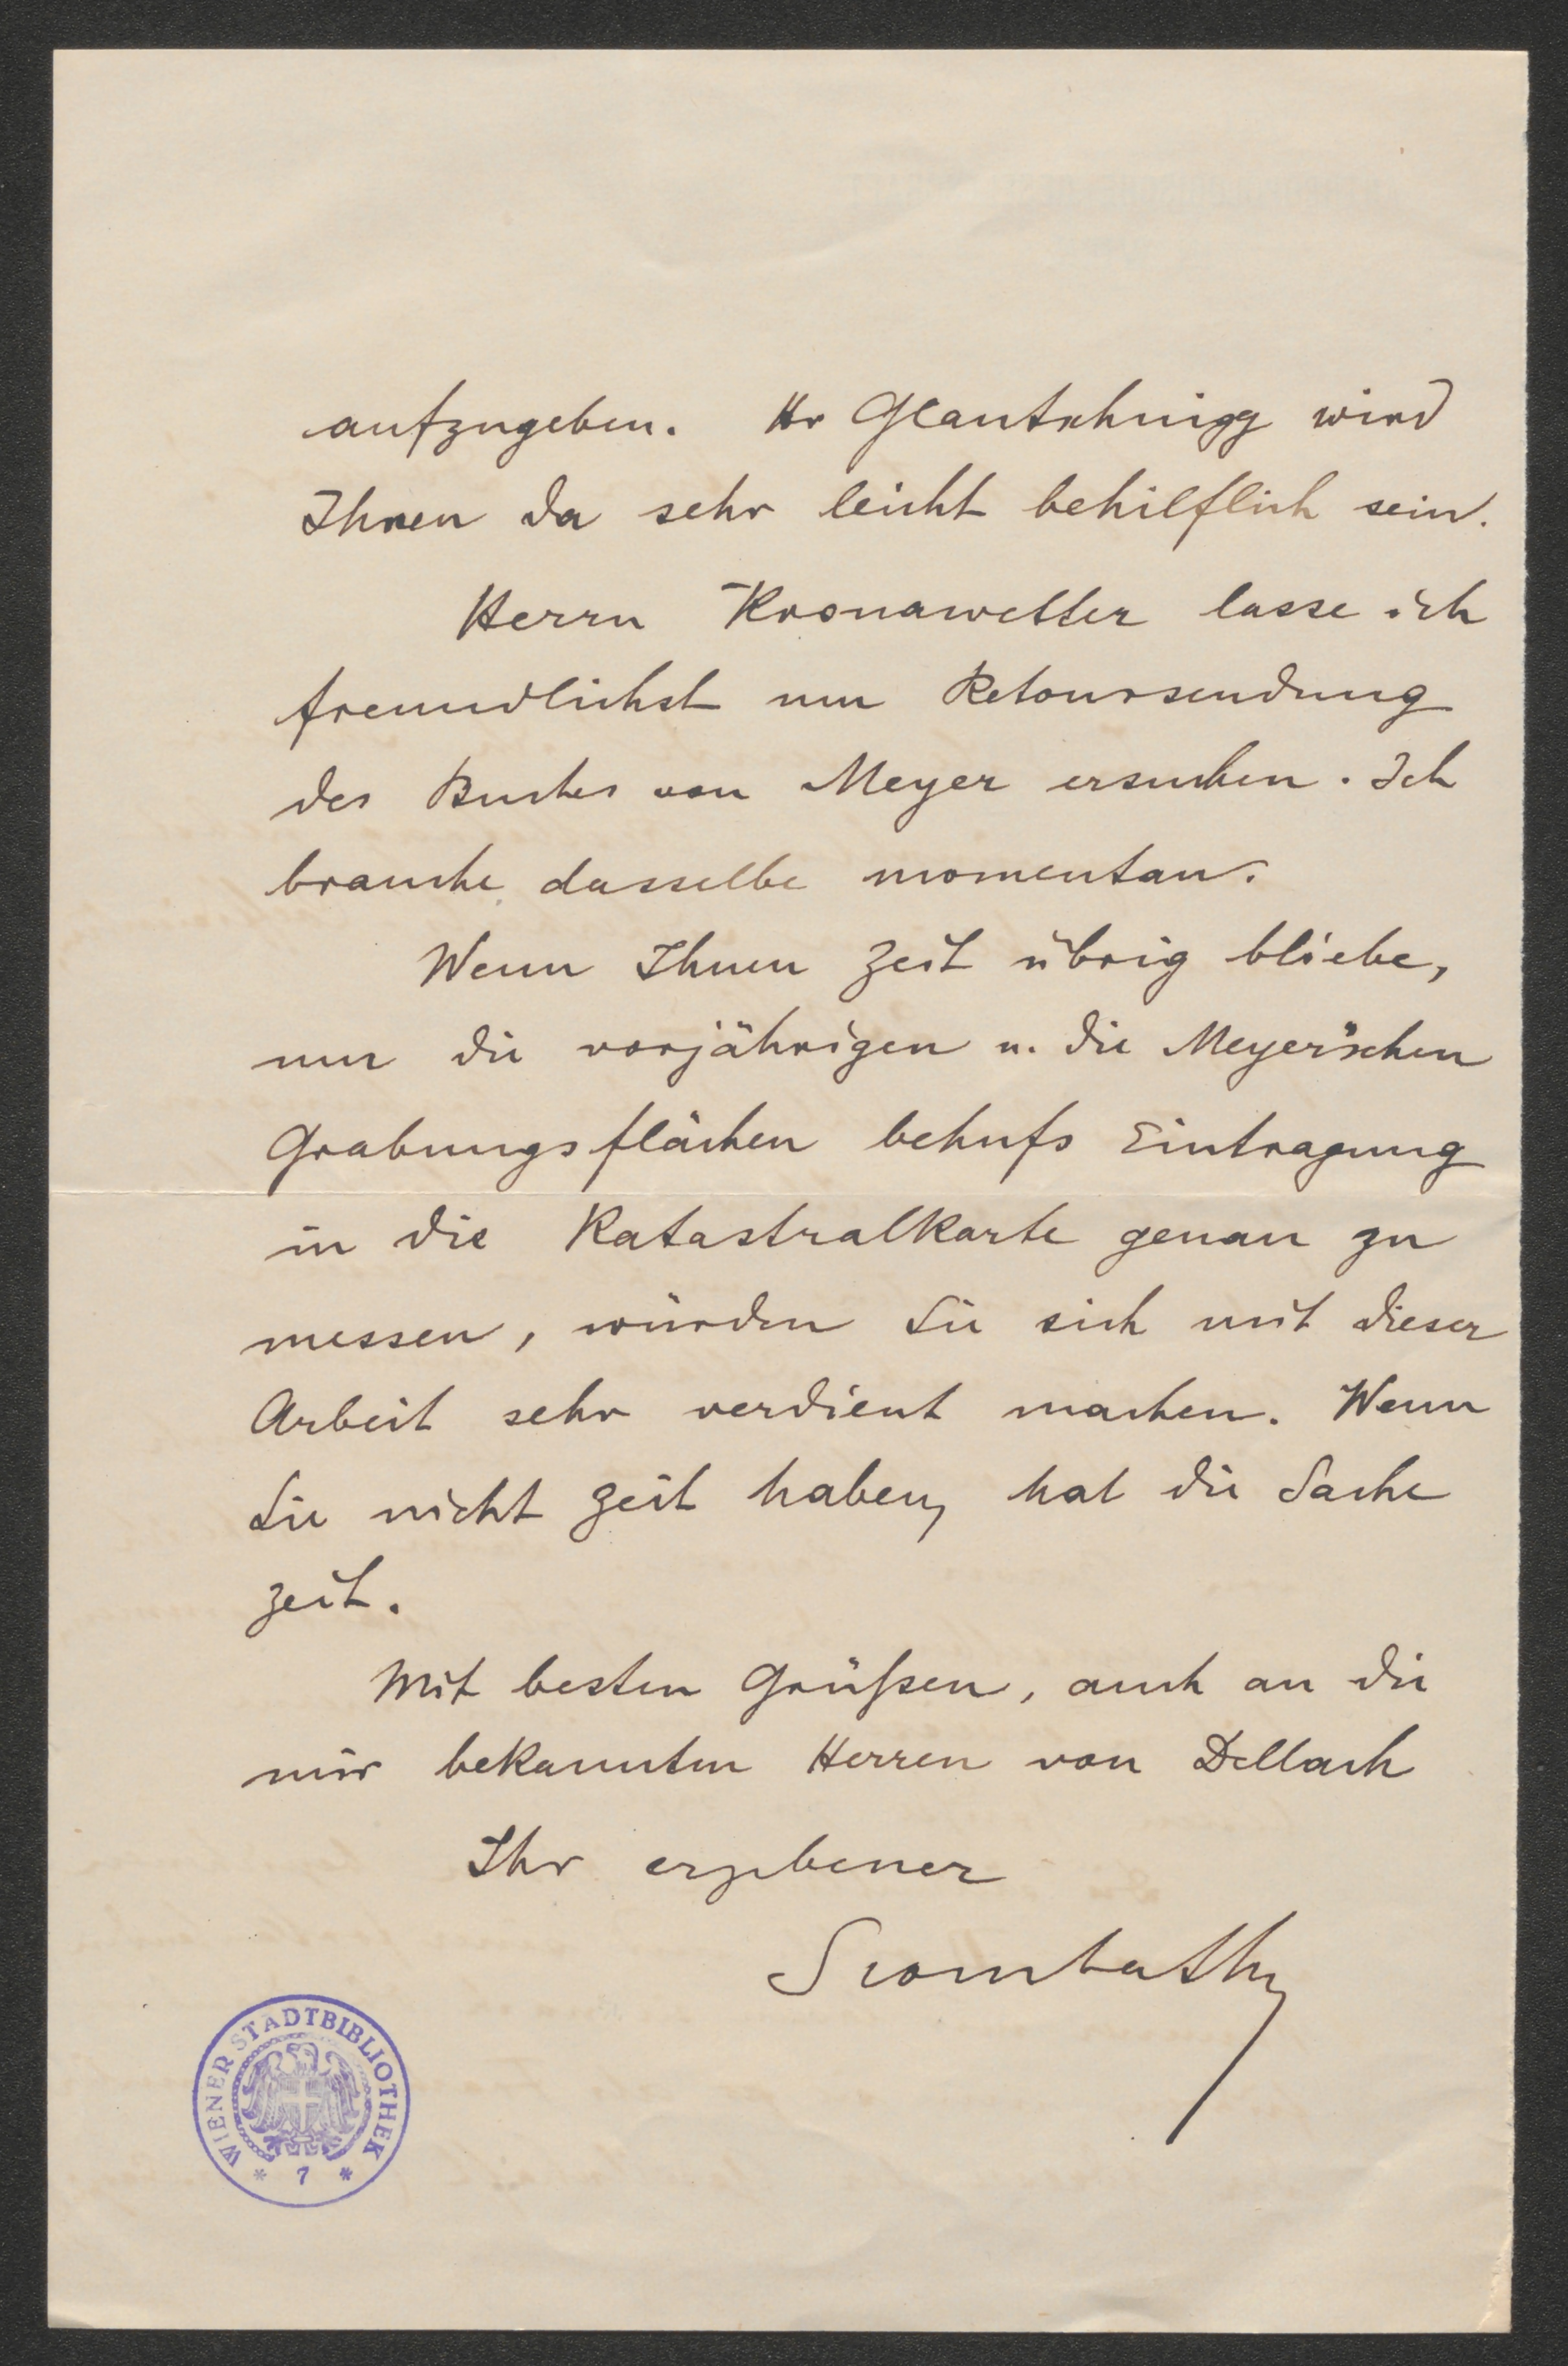 aufzugeben. Hr Glantschnigg wird
Ihnen da sehr leicht behilflich sein.
Herrn Kronawetter lasse ich
freundlichst um Retoursendung
des Buches von Meyer ersuchen. Ich
brauche dasselbe momentan.
Wenn Ihnen Zeit übrig bliebe,
um die vorjährigen u. die Meyer'schen
Grabungsflächen behufs Eintragung
in die Katastralkarte genau zu
messen, würden Sie sich mit dieser
Arbeit sehr verdient machen. Wenn
Sie nicht Zeit haben, hat die Sache
Zeit.
Mit besten Grüßen, auch an die
mir bekannten Herren von Dellach
Ihr ergebener
Szombathy
WIENER STADTBIBLIOTHEK
* 7 *